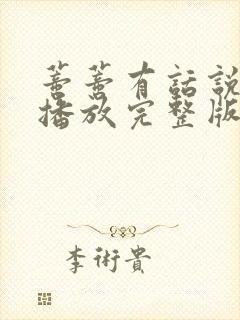 蓄蓄有話說
播放完整版
李術貴